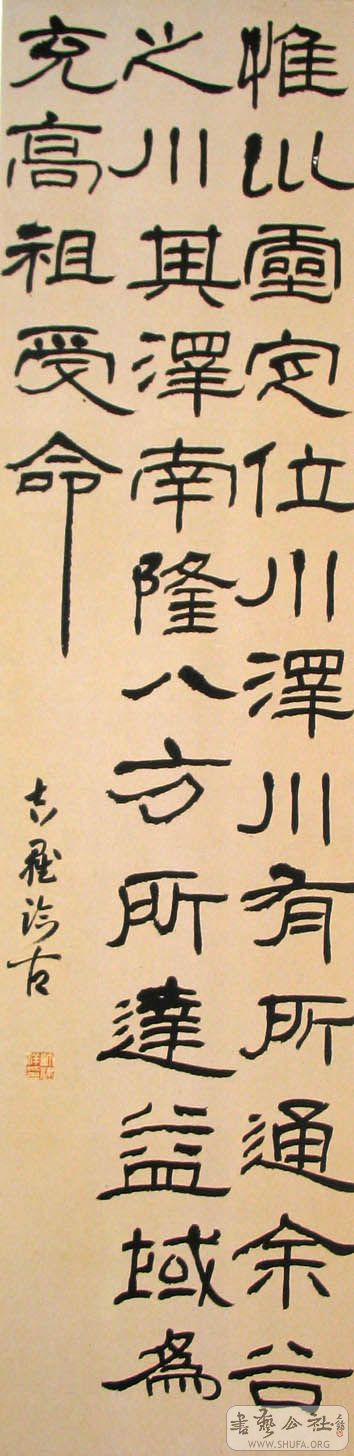 惟以靈定位川澤川有所通余谷
之川其澤南隆八方所達益域為
充高祖受命
臨古
書藝公社
WWW.SHUFA.ORG